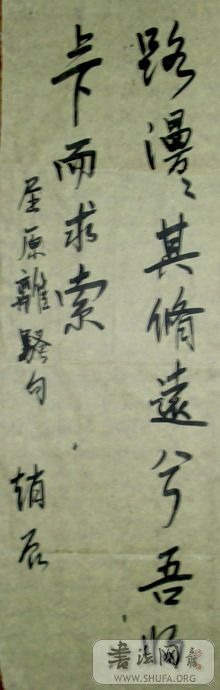 路漫〻其脩遠兮吾將
上下而求索
屈原離騷句 趙辰
書法网
WWW.SHUFA.ORG